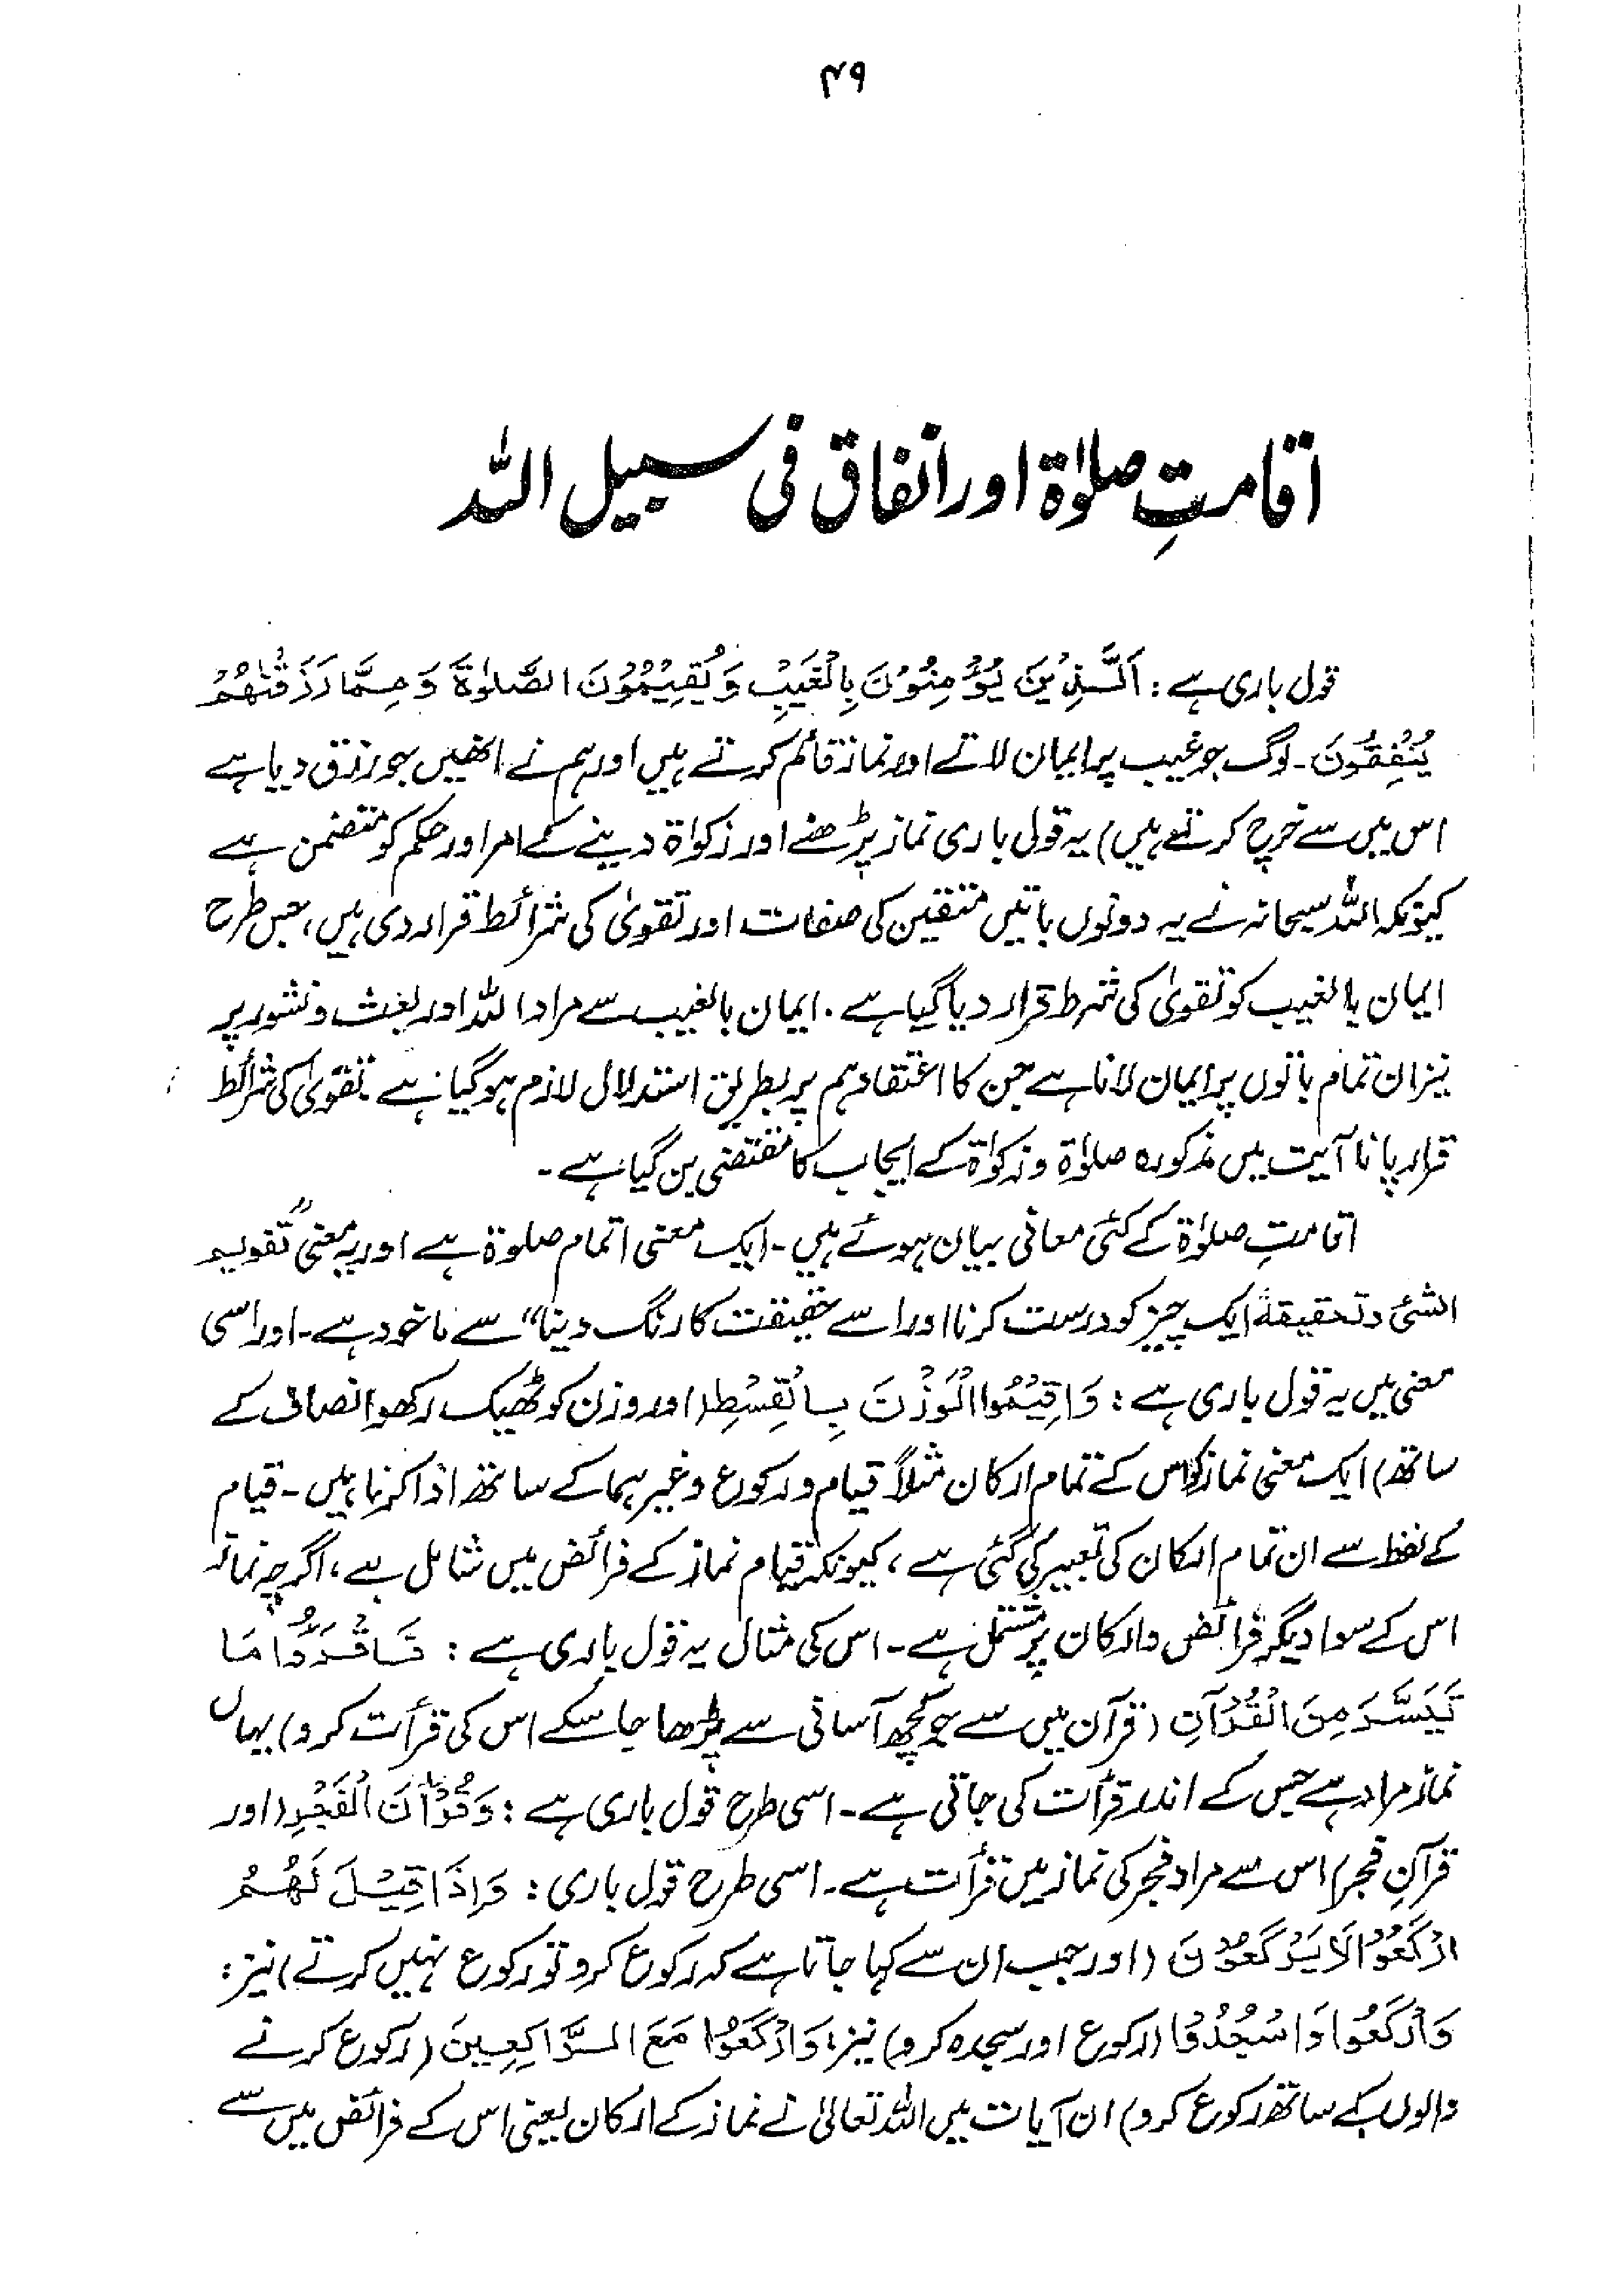 ۴۹
اقامتِ صلوٰۃ اور انفاق فی سبیل اللہ
قول باری ہے: اَلَّذِیْنَ یُؤْمِنُوْنَ بِالْغَیْبِ وَیُقِیْمُوْنَ الصَّلوٰۃَ وَمِمَّا رَزَقْنٰھُمْ
یُنْفِقُوْنَ۔ لوگ جو غیب پر ایمان لاتے اور نماز قائم کرتے ہیں اور ہم نے انھیں جو رزق دیا ہے
اس میں سے خرچ کرتے ہیں) یہ قول باری نماز پڑھنے اور زکواۃ دینے کے امر اور حکم کو متضمن ہے
کیونکہ اللہ سبحانہ نے یہ دونوں باتیں متقین کی صفات اور تقویٰ کی شرائط قرار دی ہیں، جس طرح
ایمان بالغیب کو تقویٰ کی شرط قرار دیا گیا ہے۔ ایمان بالغیب سے مراد اللہ اور بعث و نشور پر
نیز ان تمام باتوں پر ایمان لانا ہے جن کا اعتقاد ہم پر بطریق استدلال لازم ہو گیا ہے۔ تقویٰ کی شرائط
قرار پانا آیت میں مذکورہ صلوٰۃ و زکوٰۃ کے ایجاب کا مقتضی بن گیا ہے۔
اقامتِ صلوٰۃ کے کئی معانی بیان ہوئے ہیں۔ ایک معنی اتمام صلوۃ ہے اور یہ معنی "تقویم
الشئ وتحقیقہ ایک چیز کو درست کرنا اور اسے حقیقت کا رنگ دینا" سے ماخوذ ہے۔ اور اسی
معنی میں یہ قول باری ہے: وَاَقِیْمُوا الْوَزْنَ بِالْقِسْطِ (اور وزن کو ٹھیک رکھو انصاف کے
ساتھ) ایک معنی نماز کو اس کے تمام ارکان مثلاً قیام و رکوع وغیرہما کے ساتھ ادا کرنا ہیں۔ قیام
کے لفظ سے ان تمام ارکان کی تعبیر کی گئی ہے، کیونکہ قیام نماز کے فرائض میں شامل ہے، اگرچہ نماز
اس کے سوا دیگر فرائض و ارکان پر مشتمل ہے۔ اس کی مثال یہ قول باری ہے: فَاقْرَءُوْا مَا
تَیَسَّرَ مِنَ الْقُرْآنِ (قرآن میں سے جو کچھ آسانی سے پڑھا جا سکے اس کی قرأت کرو) یہاں
نماز مراد ہے جس کے اندر قرأت کی جاتی ہے۔ اسی طرح قول باری ہے: وَقُرْآنَ الْفَجْرِ (اور
قرآنِ فجر) اس سے مراد فجر کی نماز میں قرأت ہے۔ اسی طرح قول باری: وَاِذَا قِیْلَ لَھُمُ
ارْکَعُوْا لَا یَرْکَعُوْنَ (اور جب ان سے کہا جاتا ہے کہ رکوع کرو تو رکوع نہیں کرتے) نیز:
وَارْکَعُوا وَاسْجُدُوْا (رکوع اور سجدہ کرو) نیز: وَارْکَعُوْا مَعَ الرَّاکِعِیْنَ (رکوع کرنے
والوں کے ساتھ رکوع کرو) ان آیات میں اللہ تعالیٰ نے نماز کے ارکان یعنی اس کے فرائض میں سے